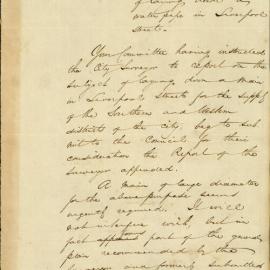 of laying down a
water pipe in Liverpool
Street.
Your Committee having instructed
the City Surveyor to report on the
subject of laying down a main
in Liverpool Street for the supply
of the Southern and Western
districts of the city, beg to sub
mit to the Council for their
consideration the Report of the
Surveyor appended.
A main of large diameter
for the above purpose seems
urgently required. It will
not interfere with, but in
fact form part of the general
plan recommended by the
Surveyor and formerly submitted